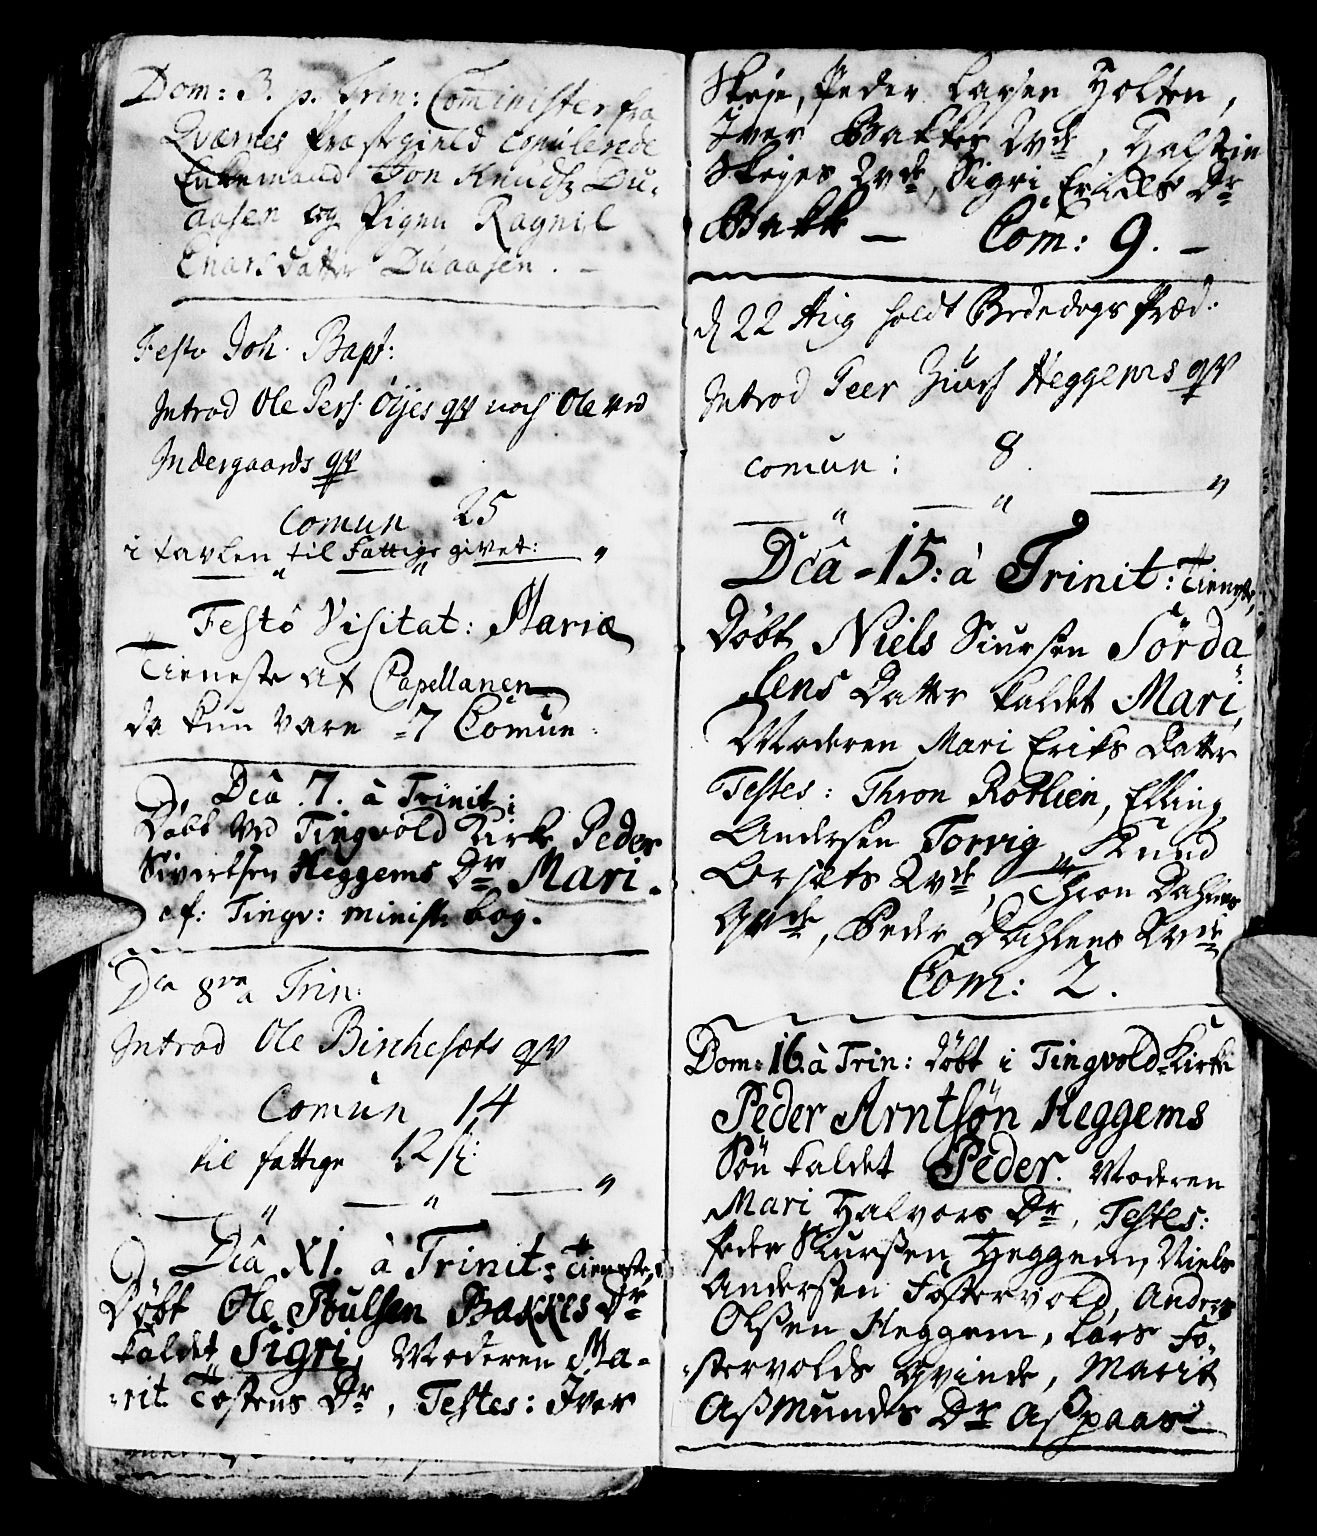 Dom: 3. p. Trin: Cominister fra
Qværnes Præstegield copulerede
Enkemand Jon Knuds: Du-
aasen og Pigen Ragnil
Enarsdatter Duaasen. –
Festo Joh. Bapt:
Introd Ole Pers: Öÿes qv noch Ole ved
Indergaards qv
Comun 25
i tavlen til Fattige givet:
Festo Visitat: Mariæ
Tieneste af Capellanen
da kun vare 7 Comun:
Dca .7. à Trinit:
Döbt ved Tingvold Kirke Peder
Sivertsen Heggems Dr Mari.
cf: Tingv: minist: bog.
Dca 8va a Trin:
Introd Ole Birchesæts qv
Comun 14
til fattige 12 s:
Dca XI. à Trinit: Tieneste,
Döbt Ole Poulsen Bakkes Dr
kaldet Sigri, Moderen Ma-
:rit Tostens Dr, Testes: Iver
Skeje, Peder Larsen Holten,
Iver Bakkes Qvde, Halstein
Skejes Qvde, Sigri Erichs Dr
Bakk — Com: 9. –
d 22 Aug holdt Bededags Præd:
Introd Peer Siurs Heggems qv
comun: 8.
Dca 15: à Trinit: Tieneste,
Döbt Niels Siursen Sörda
lens Datter kaldet Mari,
Moderen Mari Eriks Datter
Testes: Thron Rotlien, Elling
Andersen Torvig, Knud
Lorsæts Qvde, Thron Dahlens
Qvde, Peder Dahlens Qvde
Com: 2.
Dom: 16. à Trin: döbt i Tingvold Kirke
Peder Arntsøn Heggems
Sön kaldet Peder. Moderen
Mari Halvors Dr, Testes:
Peder Siurßen Heggem, Niels
Anderßen Fostervold, Anders
Olßen Heggem, Lars Fo-
:stervolds Qvinde, Marit
Aßmunds Dr Aßpaas